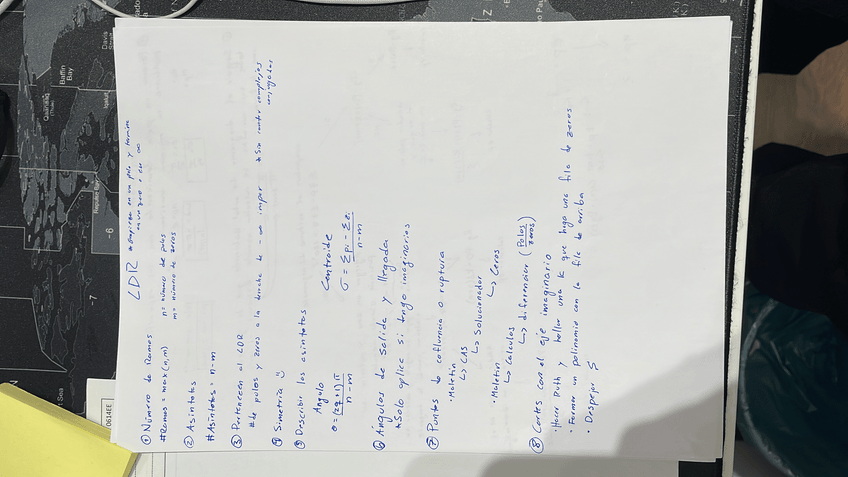 LDR
*empieza en un polo y termina
en un zero, o en ∞
① Número de Ramas
#Ramas = max(n,m)
n= número de polos
m= número de zeros
② Asíntotas
#Asíntotas = n-m
③ Pertenecen al LDR
#de polos y zeros a la derecha de - un impar
*Sin contar complejos
conjugados
④ Simetría
⑤ Describir los asíntotas
Angulo
θ = (2q+1)π / n-m
Centroide
σ = Σpi - Σzi / n-m
⑥ Ángulos de salida y llegada
*Solo aplica si tengo imaginarios
⑦ Puntos de cofluencia o ruptura
• Maletín
↳ CAS
↳ Solucionador
↳ Ceros
• Maletín
↳ Cálculos
↳ diferenciar (Polos/zeros)
⑧ Cortes con el eje imaginario
Hacer Ruth y hallar una k que haga una fila de zeros
• Formar un polinomio con la fila de arriba
• Despejar S
Baffin
Bay
Qaanaaq
(Thule)
Davis
-6
-7
Sea
0614EE